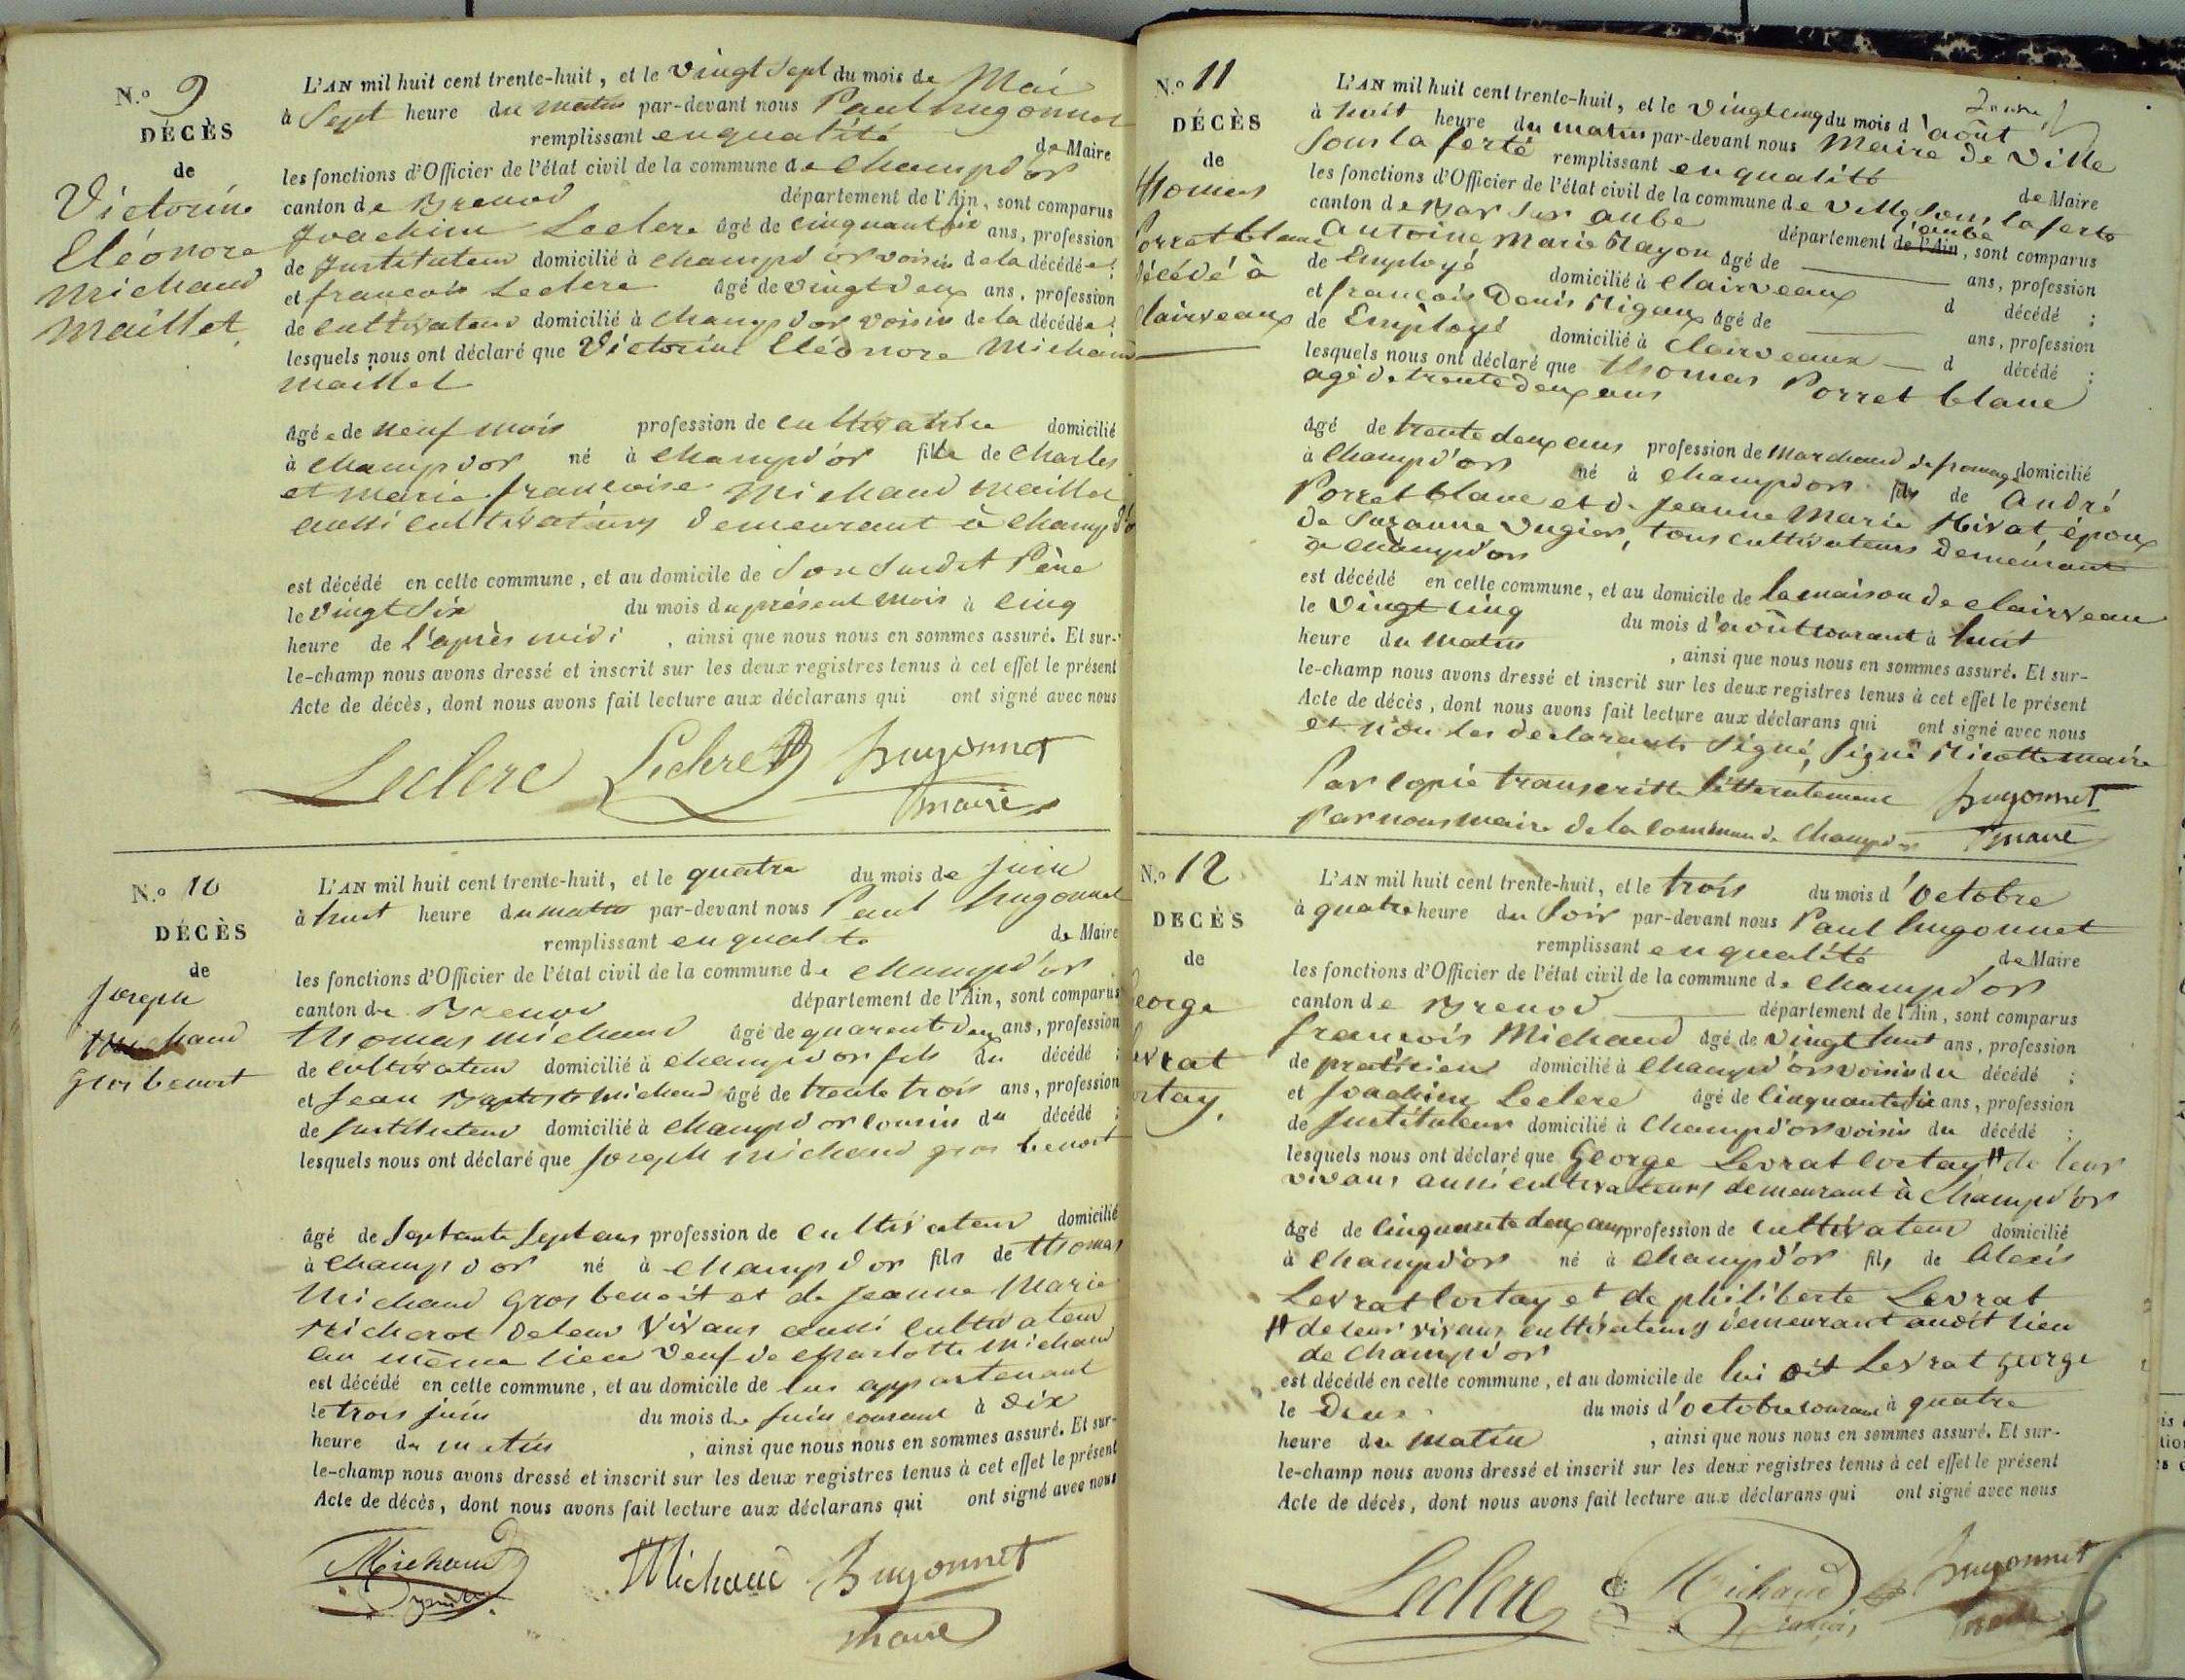 N.o 9
DÉCÈS
de
Victorine
Eléonore
Michaud
Maillet
L'AN mil huit cent trente-huit, et le vingt sept du mois de Mai
à Sept heure du matin par-devant nous Paul hugonnet
remplissant en qualité de Maire
les fonctions d'Officier de l'état civil de la commune de Champd'or
canton de Brenod département de l'Ain, sont comparus
Joachim Leclerc âgé de cinquante six ans, profession
de Instituteur domicilié à Champd'or voisin de la décédée ;
et françois Leclerc âgé de vingt deux ans, profession
de cultivateur domicilié à Champd'or voisin de la décédée ;
lesquels nous ont déclaré que Victorine Eléonore Michaud
Maillet
âgée de neuf mois profession de cultivatrice domicilié
à Champd'or né à Champd'or fille de Charles
et Marie françoise Michaud Maillet
aussi cultivateurs demeurant à Champd'or
est décédé en cette commune, et au domicile de Son Susdit Père
le vingt Six du mois du présent mois à cinq
heure de l'après midi , ainsi que nous nous en sommes assuré. Et sur-
le-champ nous avons dressé et inscrit sur les deux registres tenus à cet effet le présent
Acte de décès, dont nous avons fait lecture aux déclarans qui ont signé avec nous
Leclerc Leclerc hugonnet
maire
N.o 10
DÉCÈS
de
Joseph
Michaud
gros benoit
L'AN mil huit cent trente-huit, et le quatre du mois de Juin
à huit heure du matin par-devant nous Paul hugonnet
remplissant en qualité de Maire
les fonctions d'Officier de l'état civil de la commune de Champd'or
canton de Brenod département de l'Ain, sont comparus
Thomas Michaud âgé de quarente deux ans, profession
de cultivateur domicilié à Champd'or fils du décédé ;
et Jean Baptiste Michaud âgé de trente trois ans, profession
de Instituteur domicilié à Champd'or cousin du décédé ;
lesquels nous ont déclaré que Joseph Michaud gros benoit
âgé de Septante Sept ans profession de cultivateur domicilié
à Champd'or né à Champd'or fils de Thomas
Michaud Gros benoit et de Jeanne Marie
Micherot de leur vivans aussi cultivateur
au même lieu veuf de Charlotte Michaud
est décédé en cette commune, et au domicile de lui appartenant
le trois juin du mois de Juin courant à dix
heure du matin , ainsi que nous nous en sommes assuré. Et sur-
le-champ nous avons dressé et inscrit sur les deux registres tenus à cet effet le présent
Acte de décès, dont nous avons fait lecture aux déclarans qui ont signé avec nous
Michaud Michaud hugonnet
maire
N.o 11
DÉCÈS
de
Thomas
Porret blanc
décédé à
Clairveaux
L'AN mil huit cent trente-huit, et le vingt cinq du mois d'août
à huit heure du matin par-devant nous Maire de Ville
Sous la ferté remplissant en qualité de Maire
les fonctions d'Officier de l'état civil de la commune de Ville Sous la ferté
canton de Bar Sur aube département de l'Ain, l'aube sont comparus
Antoine Marie Rayon âgé de ans, profession
de Employé domicilié à Clairveaux d décédé ;
et françois Denis Rigaux âgé de ans, profession
de Employé domicilié à Clairveaux d décédé ;
lesquels nous ont déclaré que Thomas Porret blanc
agé de trente deux ans
âgé de trente deux ans profession de Marchand de fromage domicilié
à Champd'or né à Champd'or fils de André
Porret blanc et de Jeanne Marie Nivat, époux
de Suzanne Vugier, tous cultivateurs demeurant
à Champd'or
est décédé en cette commune, et au domicile de la maison de clairveau
le vingt cinq du mois d'août courant à huit
heure du matin , ainsi que nous nous en sommes assuré. Et sur-
le-champ nous avons dressé et inscrit sur les deux registres tenus à cet effet le présent
Acte de décès, dont nous avons fait lecture aux déclarans qui ont signé avec nous
et non les déclarants Signé, Signé Nicotte maire
Par copie transcritte littéralement hugonnet
Par nous maire de la commune de Champd'or maire
N.o 12
DÉCÈS
de
George
Levrat
Cortay
L'AN mil huit cent trente-huit, et le trois du mois d'octobre
à quatre heure du Soir par-devant nous Paul hugonnet
remplissant en qualité de Maire
les fonctions d'Officier de l'état civil de la commune de Champd'or
canton de Brenod département de l'Ain, sont comparus
françois Michaud âgé de vingt huit ans, profession
de praticien domicilié à Champd'or voisin du décédé ;
et Joachim Leclerc âgé de cinquante six ans, profession
de Instituteur domicilié à Champd'or voisin du décédé ;
lesquels nous ont déclaré que George Levrat Cortay # de leur
vivans aussi cultivateurs demeurant à Champd'or
âgé de cinquante deux ans profession de cultivateur domicilié
à Champd'or né à Champd'or fils de Alexis
Levrat Cortay et de philiberte Levrat
# de leur vivans cultivateurs demeurant audit lieu
de Champd'or
est décédé en cette commune, et au domicile de lui dit Levrat George
le Deux du mois d'octobre courant à quatre
heure du matin , ainsi que nous nous en sommes assuré. Et sur-
le-champ nous avons dressé et inscrit sur les deux registres tenus à cet effet le présent
Acte de décès, dont nous avons fait lecture aux déclarans qui ont signé avec nous
Leclerc Michaud hugonnet
maire